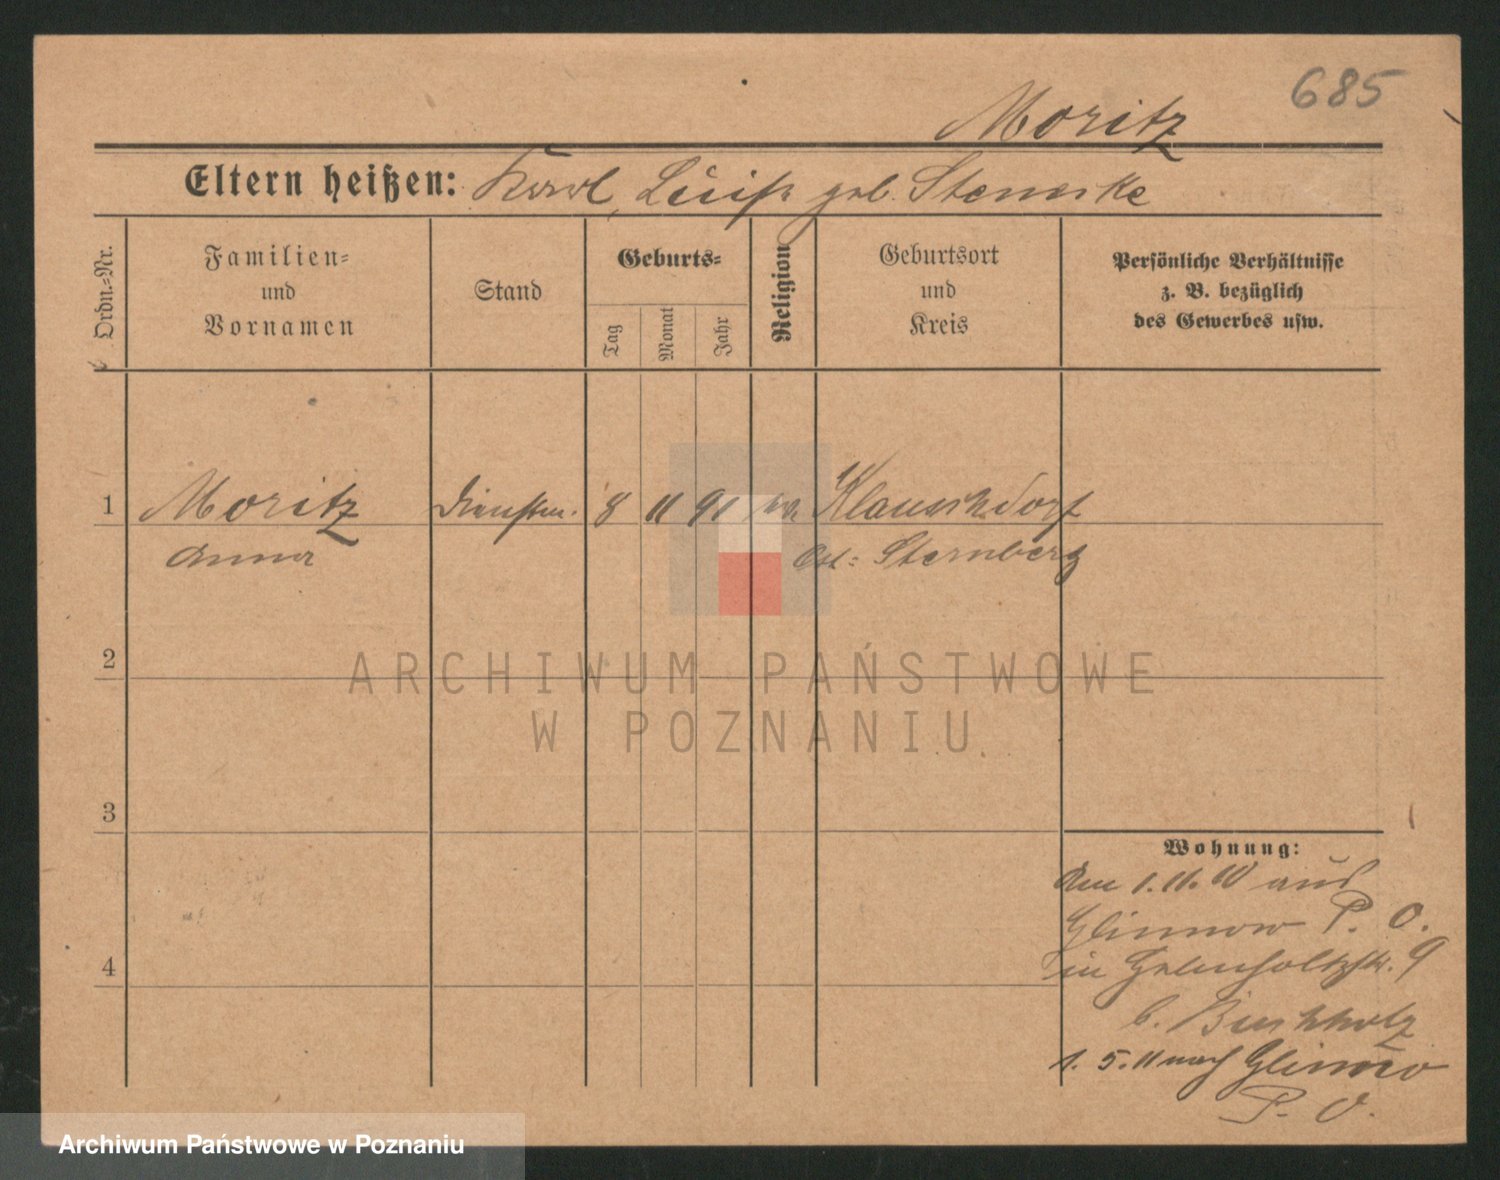 685
Moritz
Eltern heißen: Karl, Luise geb. Stenschke
Ordn.-Nr.
Familien-
und
Vornamen
Stand
Geburts-
Tag
Monat
Jahr
Religion
Geburtsort
und
Kreis
Persönliche Verhältnisse
z. B. bezüglich
des Gewerbes usw.
1 Moritz Dienstm. 8 11 91 Klauschdorf
Anna Ost-Sternberg
2
3
4
Wohnung:
Am 1.11.10 aus
P. O.
in 9
b. Buchholz
1. 5. 11 nach
P. O.
ARCHIWUM PAŃSTWOWE
W POZNANIU
Archiwum Państwowe w Poznaniu